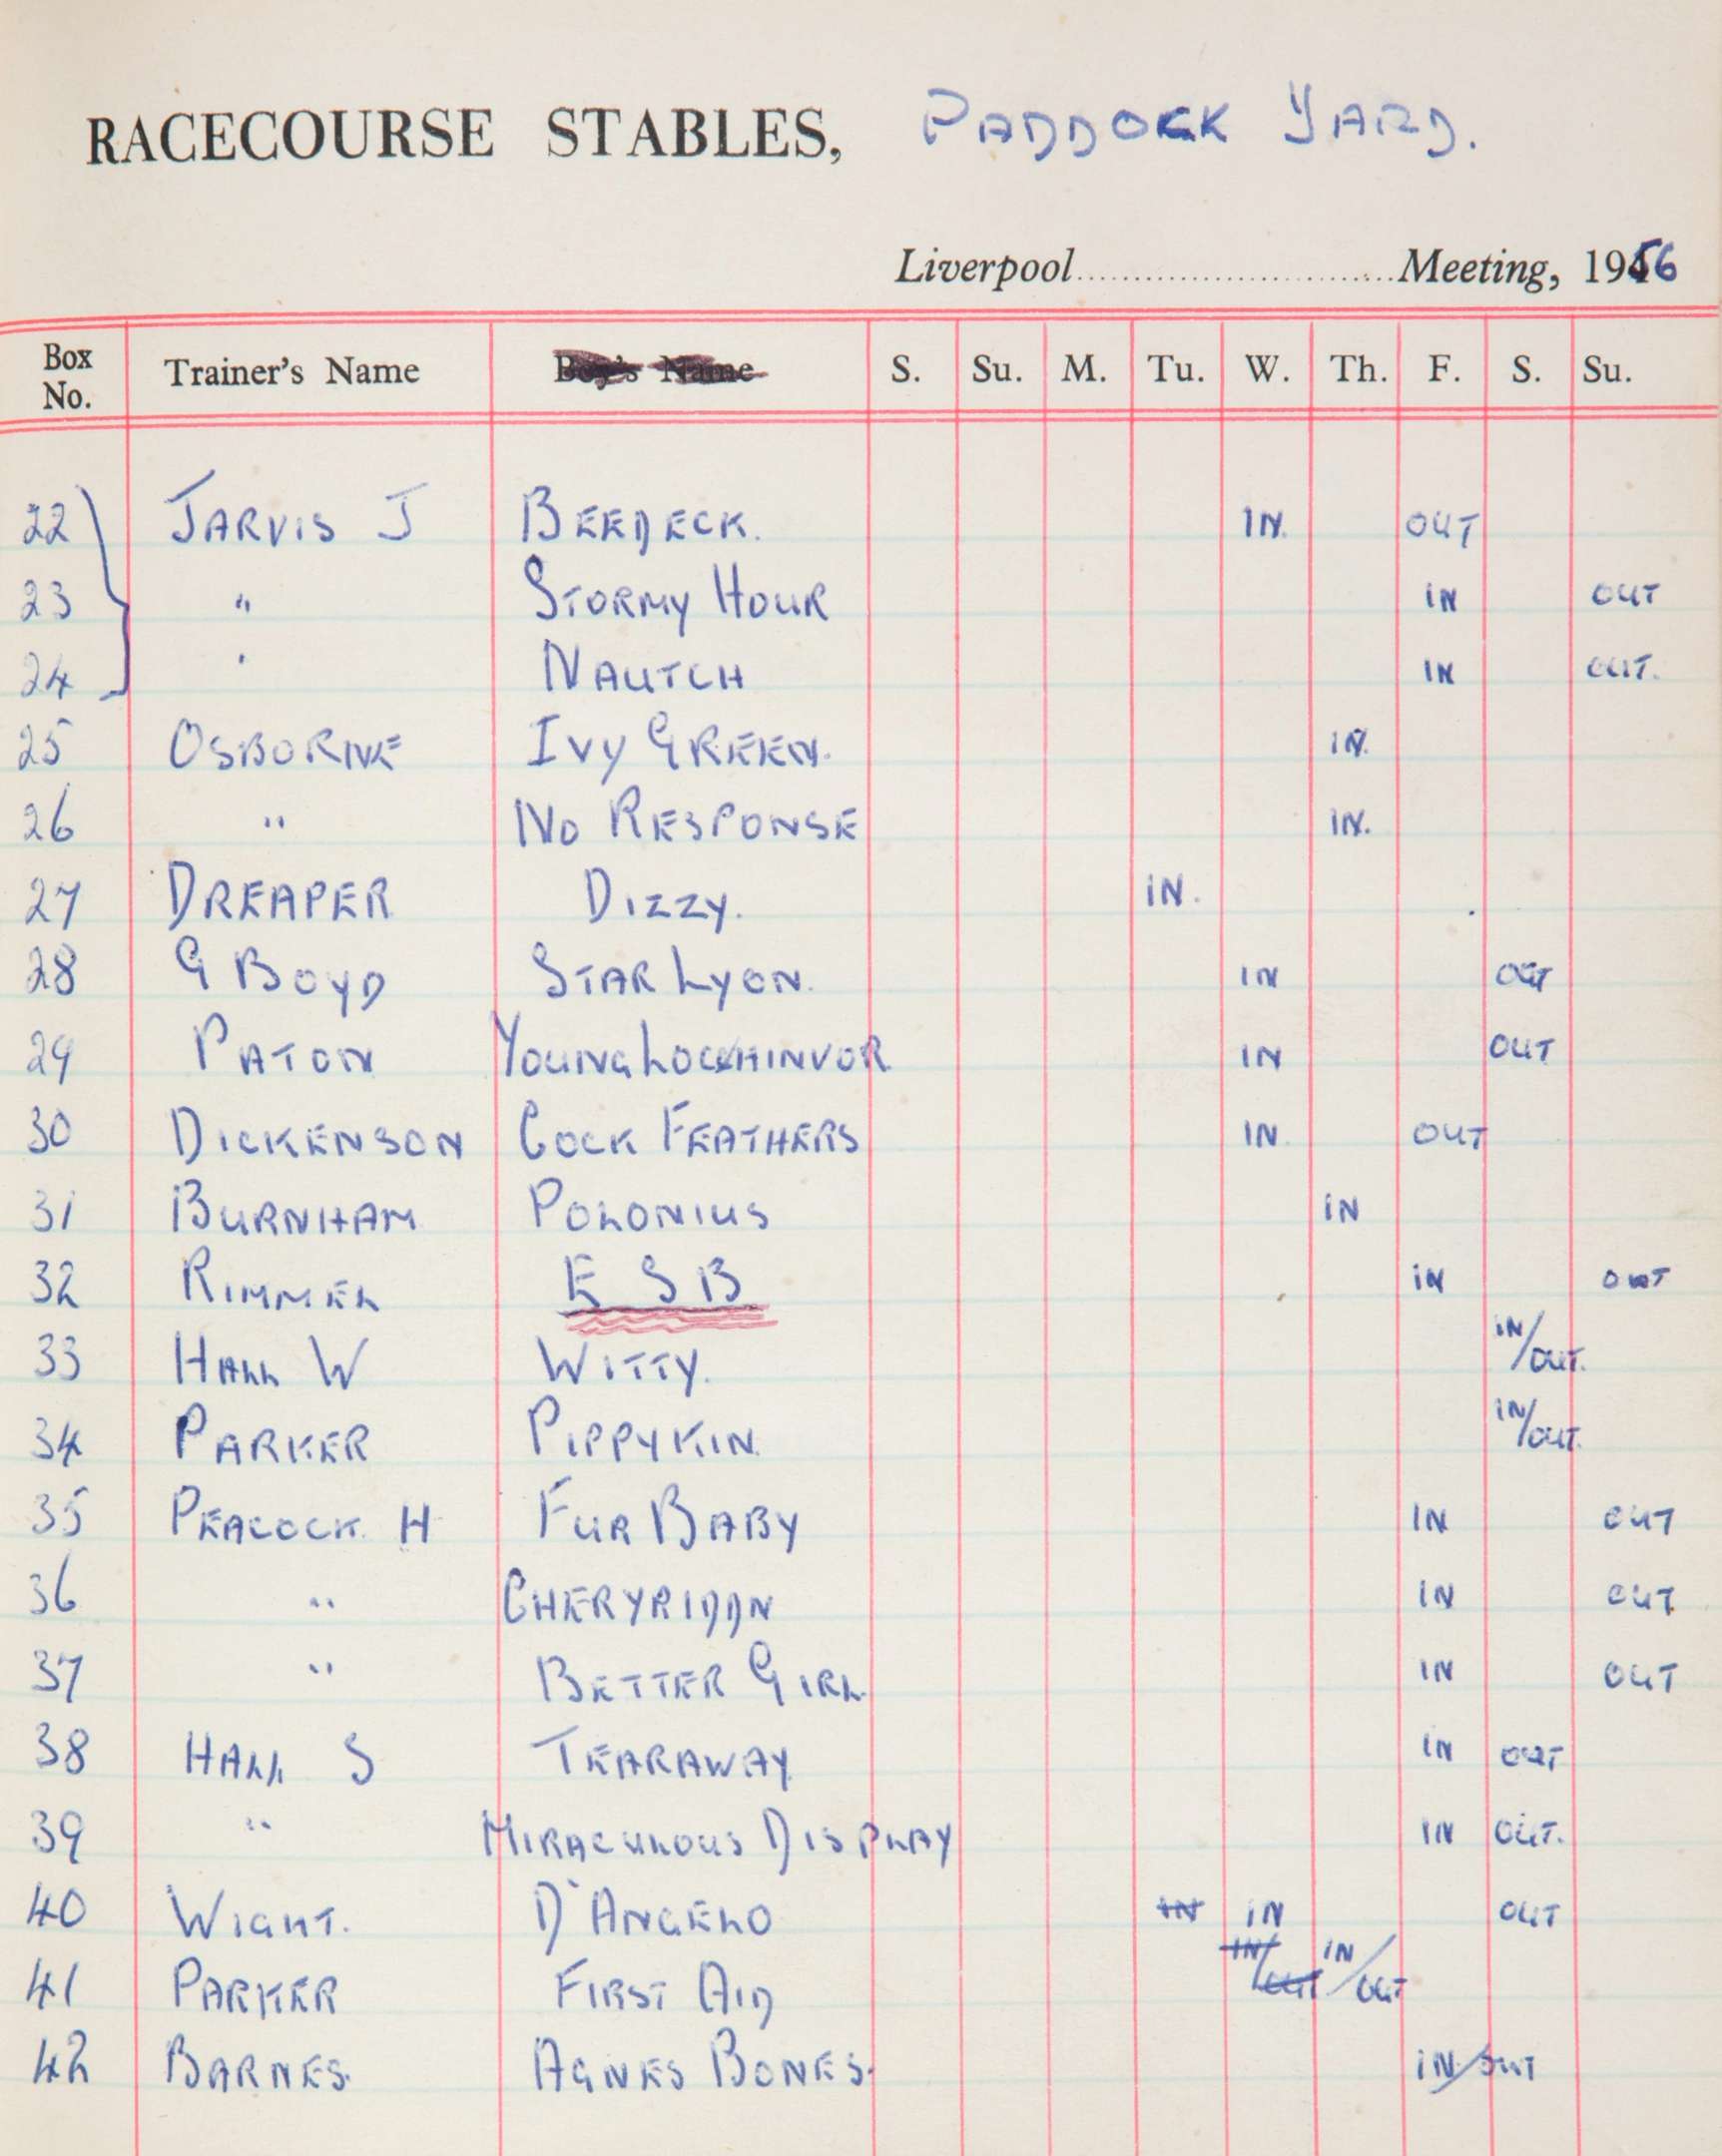 RACECOURSE STABLES, PADDOCK YARD.
Liverpool..............................Meeting, 1956
Box No. Trainer's Name Boy's Name S. Su. M. Tu. W. Th. F. S. Su.
22 JARVIS J BEEDECK. IN. OUT
23 " STORMY HOUR IN OUT
24 " NAUTCH IN OUT.
25 OSBORNE IVY GREEN. IN.
26 " NO RESPONSE IN.
27 DREAPER DIZZY. IN.
28 G BOYD STAR LYON. IN OUT
29 PATON YOUNG LOCHINVOR IN OUT
30 DICKENSON COCK FEATHERS IN OUT
31 BURNHAM POLONIUS IN
32 RIMMEL E S B IN OUT
33 HALL W WITTY. IN/OUT.
34 PARKER PIPPYKIN. IN/OUT.
35 PEACOCK H FUR BABY IN OUT
36 " CHERYRIDDN IN OUT
37 " BETTER GIRL. IN OUT
38 HALL S TEARAWAY. IN OUT
39 " MIRACULOUS DISPLAY IN OUT.
40 WIGHT. D'ANGELO IN IN OUT
41 PARKER FIRST AID IN/OUT IN/OUT
42 BARNES. AGNES BONES. IN/OUT